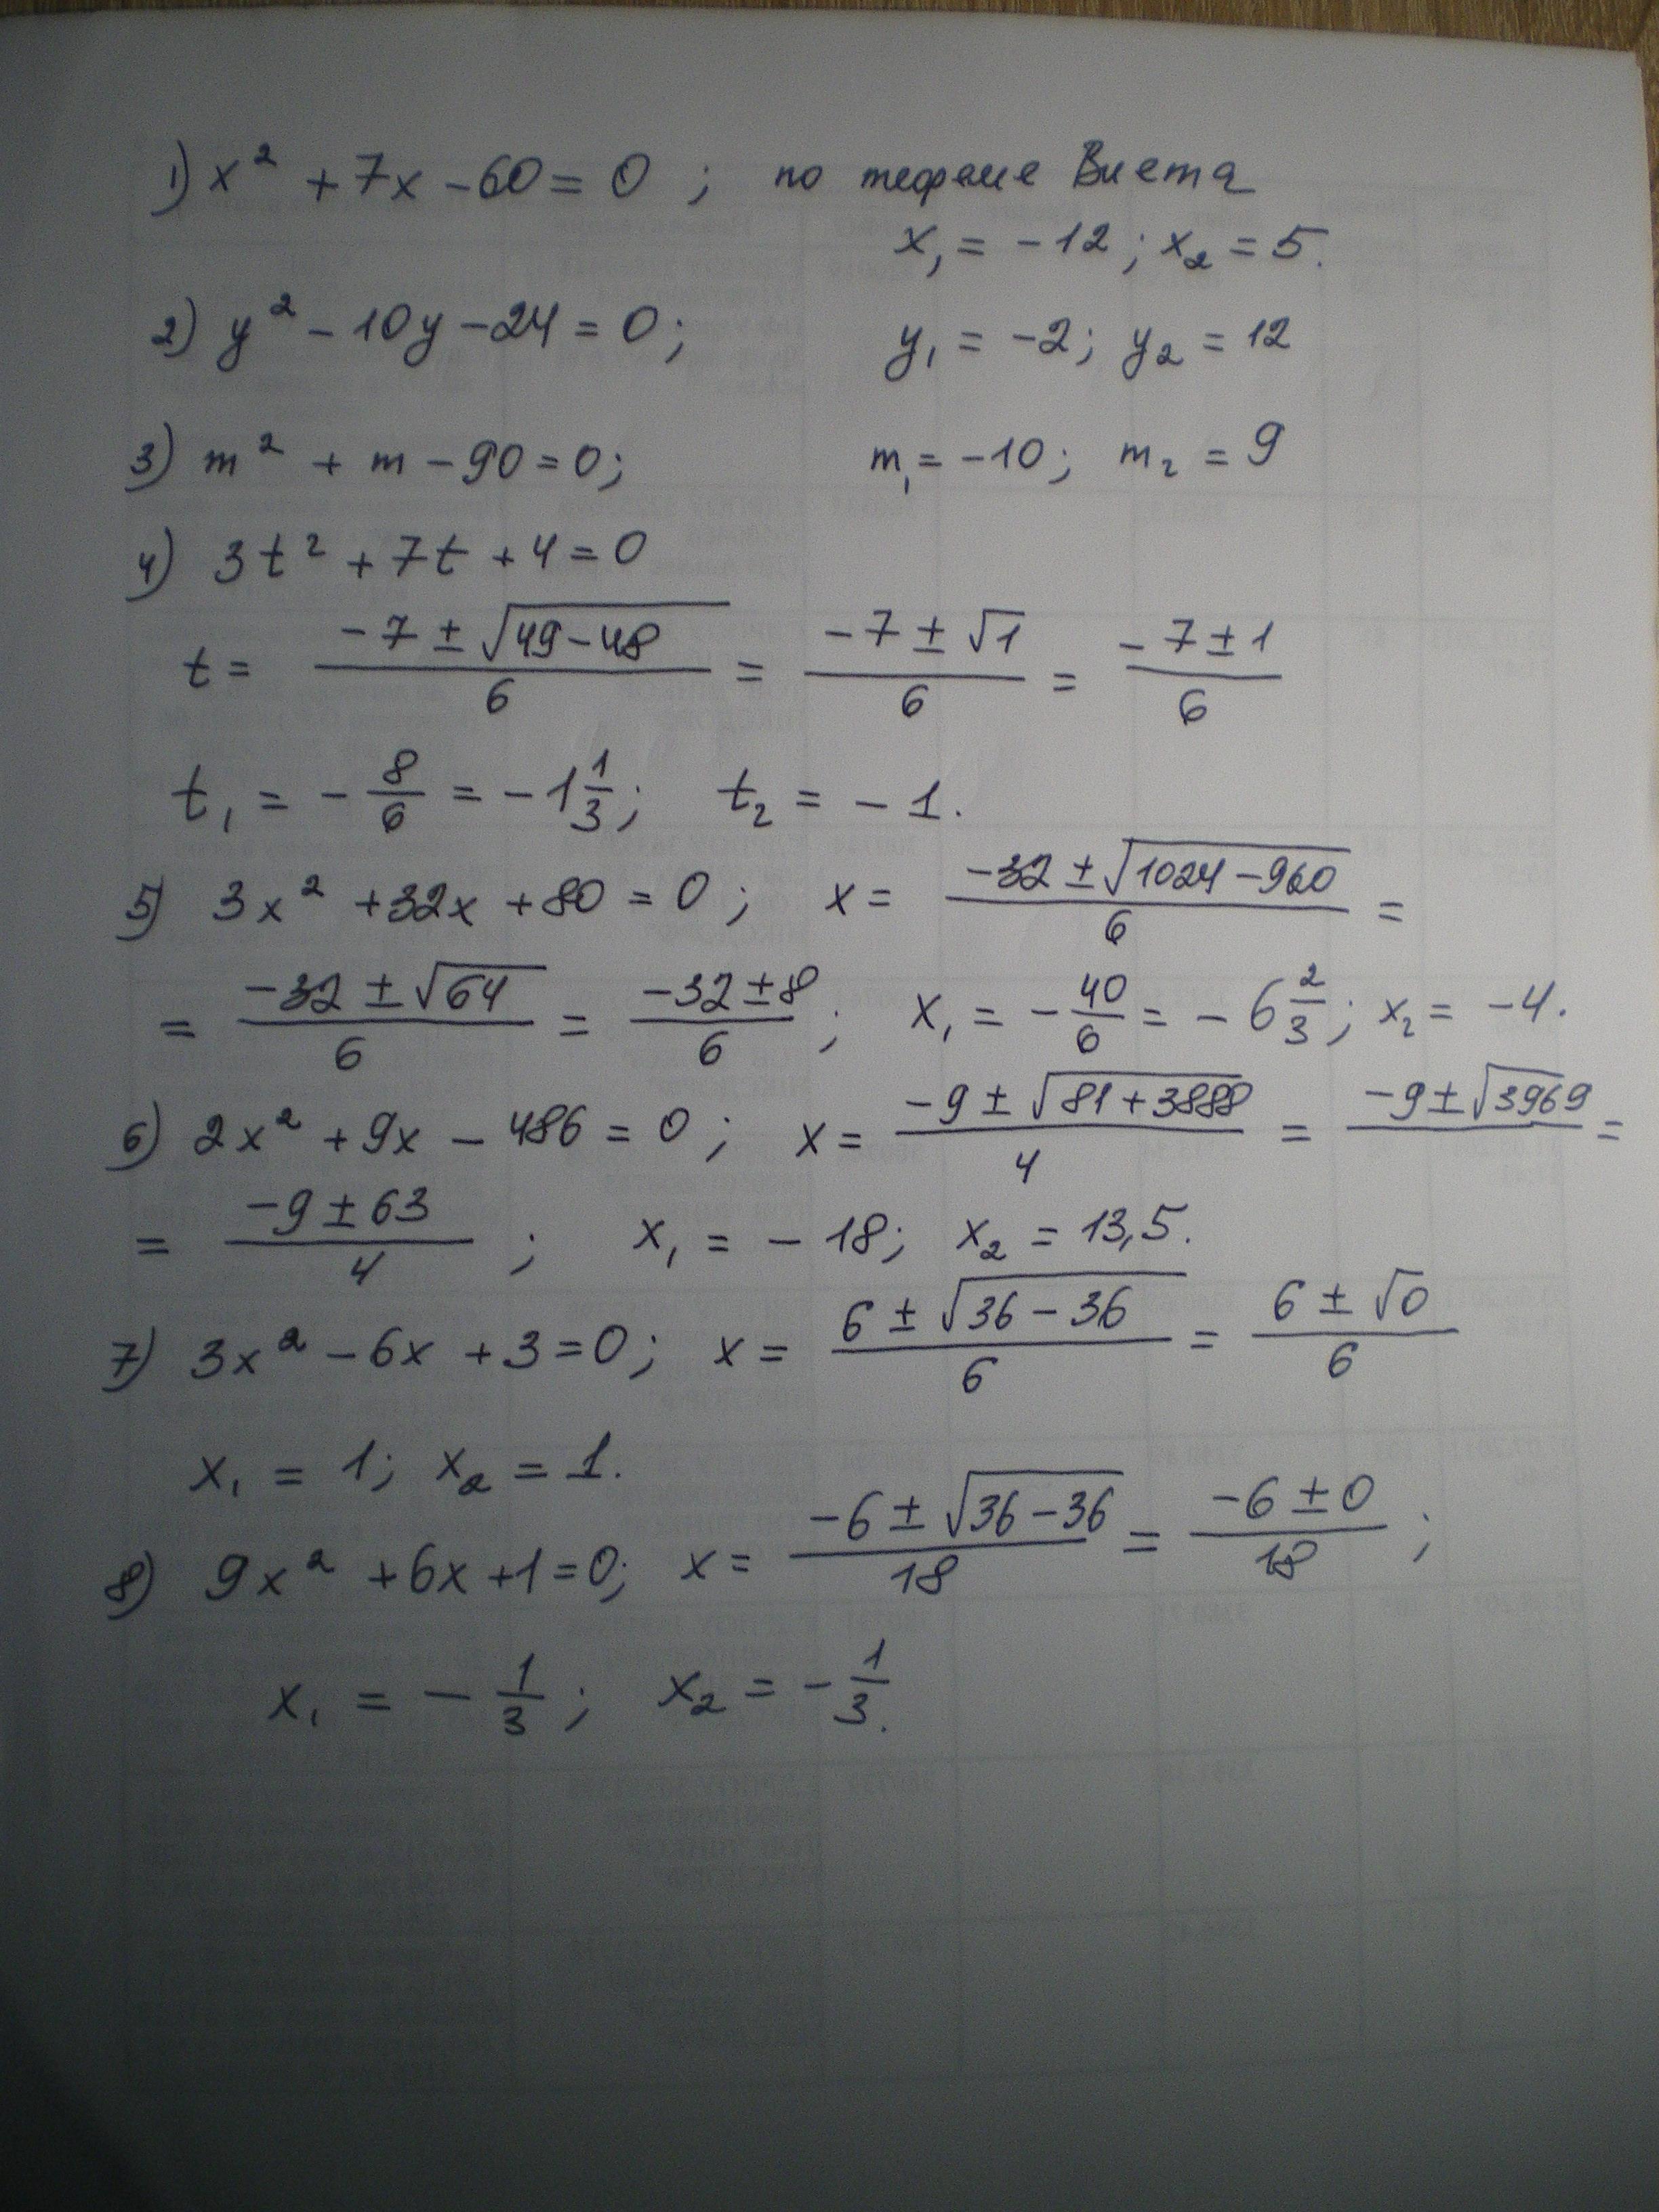 1) x² + 7x - 60 = 0 ; по теореме Виета
x₁ = -12 ; x₂ = 5.
2) y² - 10y - 24 = 0 ; y₁ = -2 ; y₂ = 12
3) m² + m - 90 = 0 ; m₁ = -10 ; m₂ = 9
4) 3t² + 7t + 4 = 0
t = (-7 ± √(49 - 48))/6 = (-7 ± √1)/6 = (-7 ± 1)/6
t₁ = -8/6 = -1 1/3 ; t₂ = -1.
5) 3x² + 32x + 80 = 0 ; x = (-32 ± √(1024 - 960))/6 =
= (-32 ± √64)/6 = (-32 ± 8)/6 ; x₁ = -40/6 = -6 2/3 ; x₂ = -4.
6) 2x² + 9x - 486 = 0 ; x = (-9 ± √(81 + 3888))/4 = (-9 ± √3969)/ =
= (-9 ± 63)/4 ; x₁ = -18 ; x₂ = 13,5.
7) 3x² - 6x + 3 = 0 ; x = (6 ± √(36 - 36))/6 = (6 ± √0)/6
x₁ = 1 ; x₂ = 1.
8) 9x² + 6x + 1 = 0 ; x = (-6 ± √(36 - 36))/18 = (-6 ± 0)/18 ;
x₁ = -1/3 ; x₂ = -1/3.